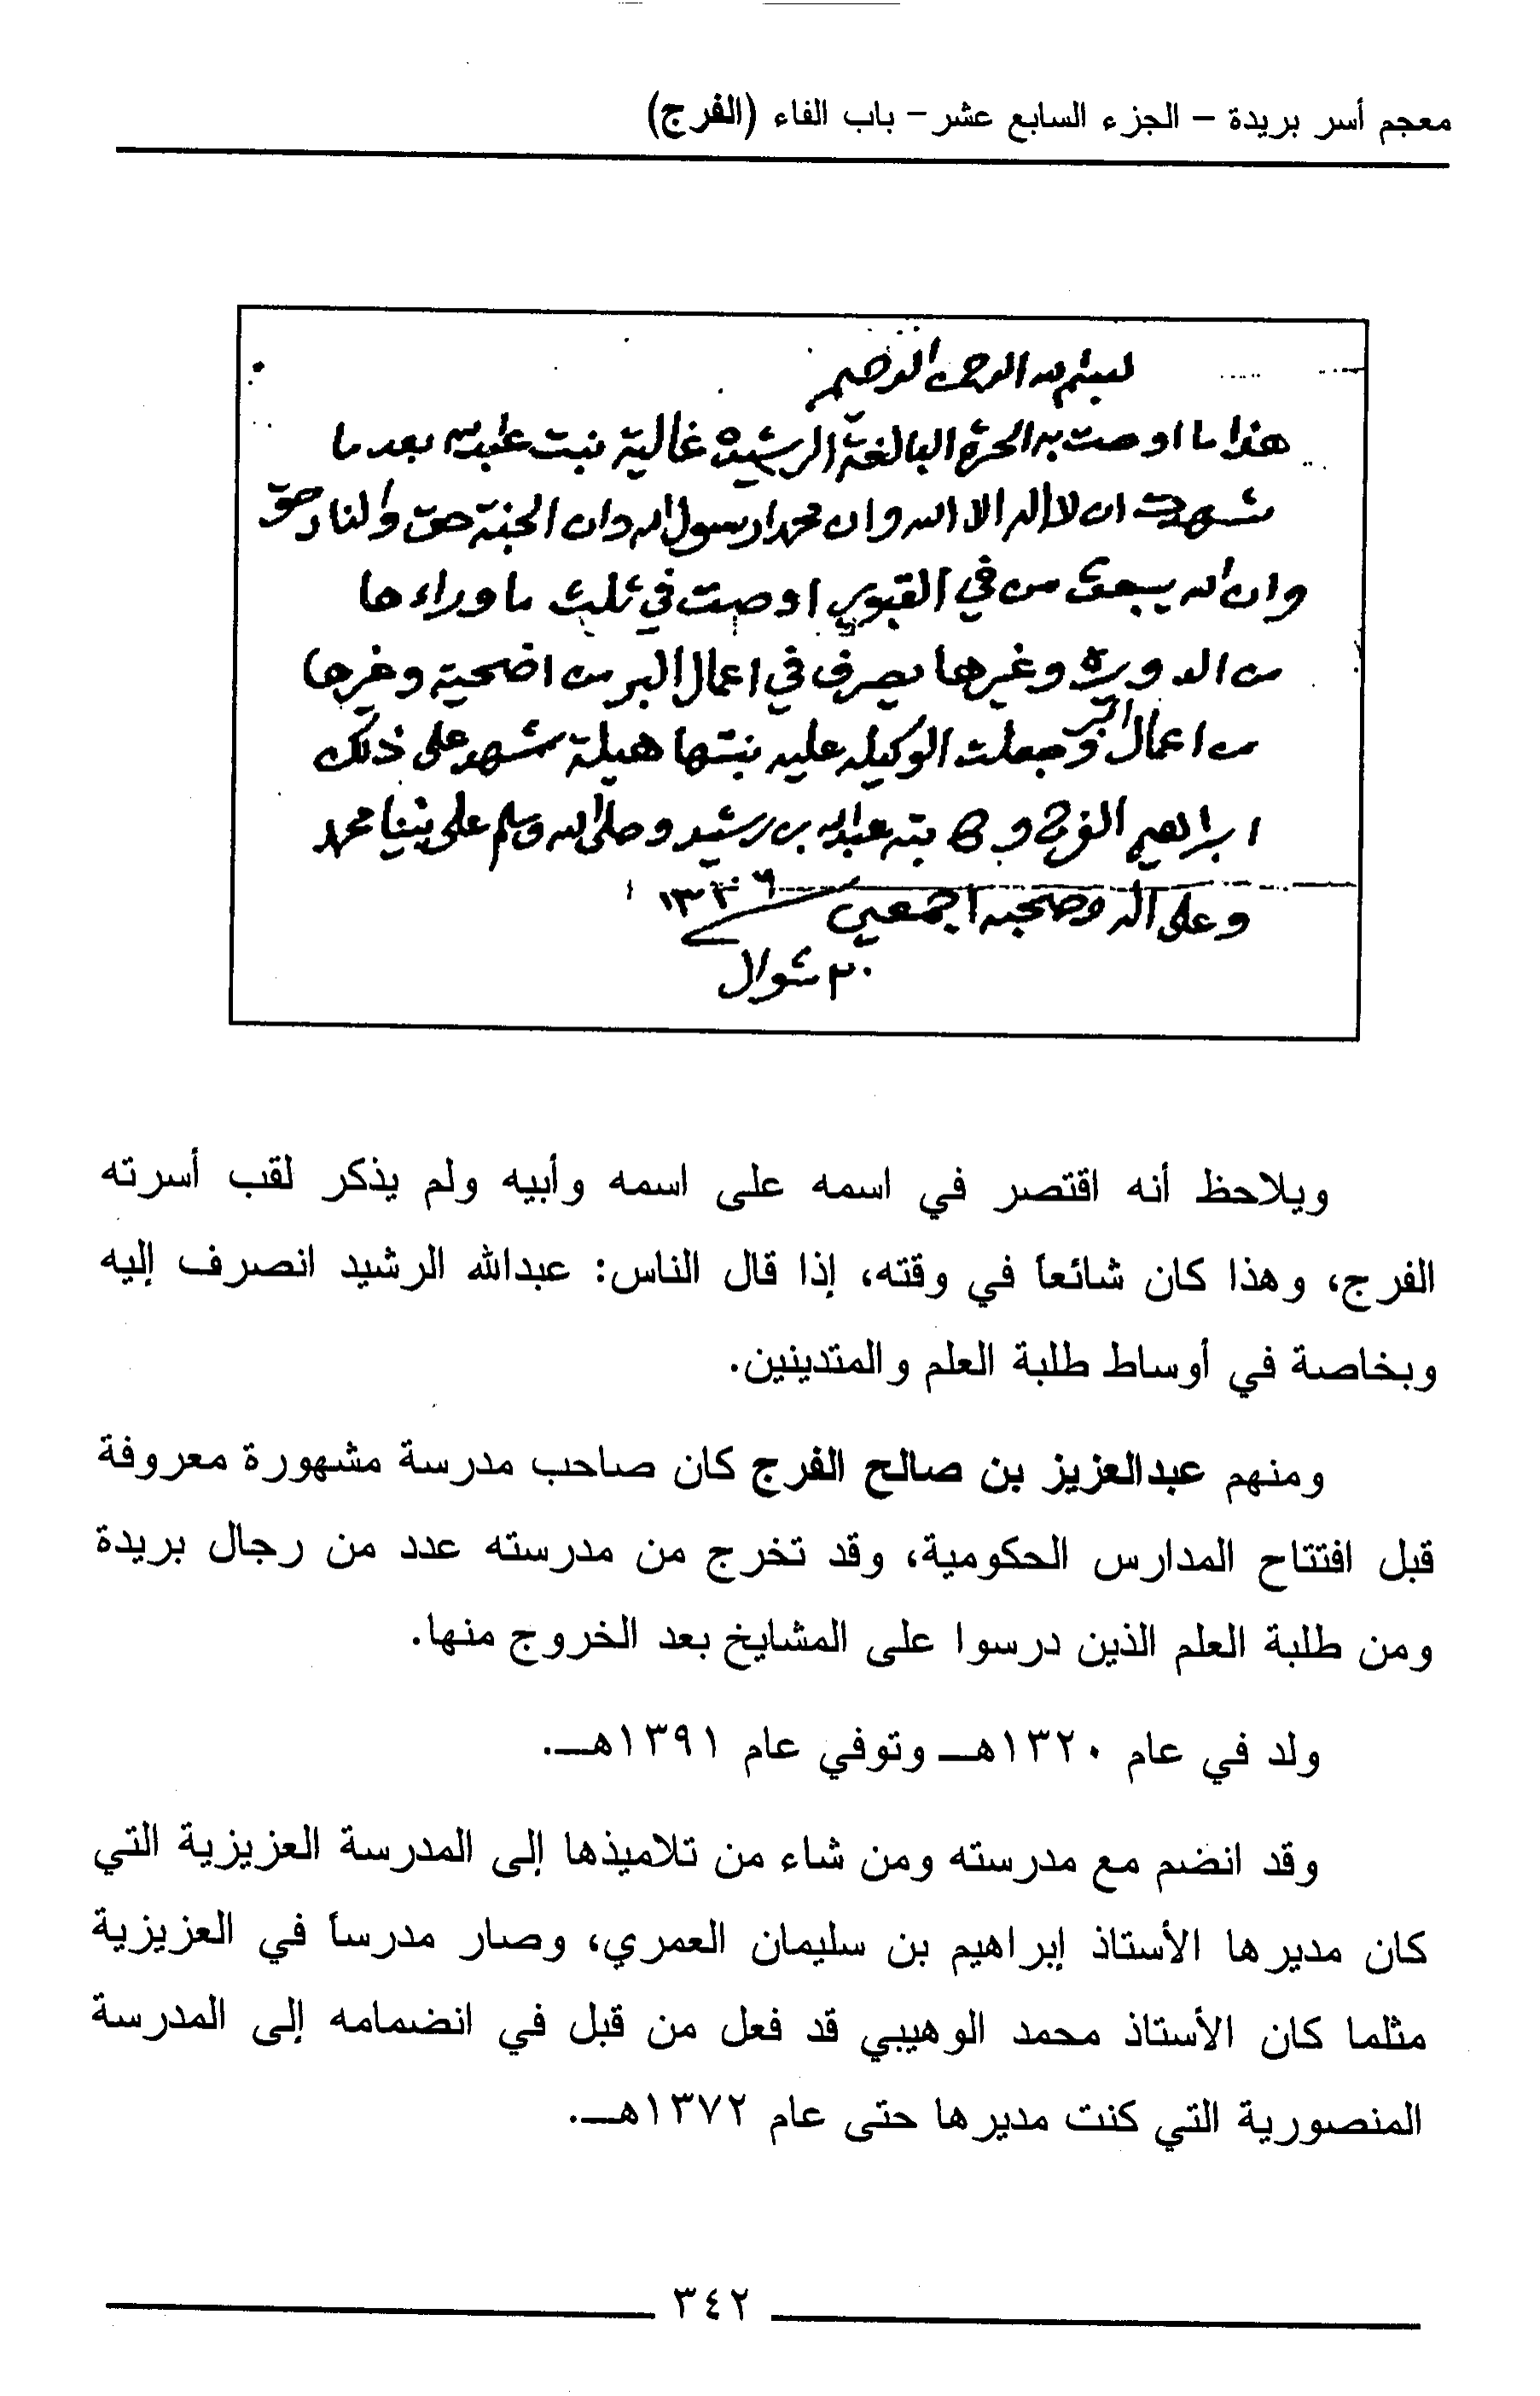 معجم أسر بريدة – الجزء السابع عشر – باب الفاء (الفرج)
بسم الله الرحمن الرحيم
هذا ما اوصت به الحرة البالغة الرشيده غالية بنت عبدالله بعد ما
شهدت ان لا اله الا الله وان محمدا رسول الله وان الجنة حق والنار حق
وان الله يبعث من في القبور اوصت في ثلث ما وراءها
من الدويرة وغيرها يصرف في اعمال البر من اضحية وغيرها
من اعمال البر وجعلت الوكيله عليه بنتها هيلة شهد على ذلك
ابراهيم الفرج و كاتبه عبدالله بن رشيد وصلى الله وسلم على نبينا محمد
وعلى اله وصحبه اجمعين ١٣٣٦
٢٠ شوال
ويلاحظ أنه اقتصر في اسمه على اسمه وأبيه ولم يذكر لقب أسرته
الفرج، وهذا كان شائعاً في وقته، إذا قال الناس: عبدالله الرشيد انصرف إليه
وبخاصة في أوساط طلبة العلم والمتدينين.
ومنهم عبدالعزيز بن صالح الفرج كان صاحب مدرسة مشهورة معروفة
قبل افتتاح المدارس الحكومية، وقد تخرج من مدرسته عدد من رجال بريدة
ومن طلبة العلم الذين درسوا على المشايخ بعد الخروج منها.
ولد في عام ١٣٢٠هـ وتوفي عام ١٣٩١هـ.
وقد انضم مع مدرسته ومن شاء من تلاميذها إلى المدرسة العزيزية التي
كان مديرها الأستاذ إبراهيم بن سليمان العمري، وصار مدرساً في العزيزية
مثلما كان الأستاذ محمد الوهيبي قد فعل من قبل في انضمامه إلى المدرسة
المنصورية التي كنت مديرها حتى عام ١٣٧٢هـ.
٣٤٢